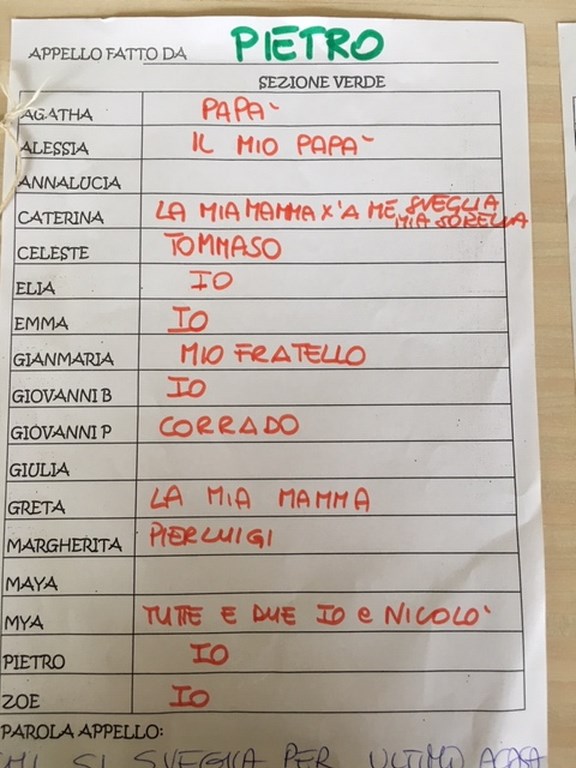 APPELLO FATTO DA PIETRO
SEZIONE VERDE
AGATHA PAPA'
ALESSIA IL MIO PAPA'
ANNALUCIA
CATERINA LA MIA MAMMA X'A ME SVEGLIA
MIA SORELLA
CELESTE TOMMASO
ELIA IO
EMMA IO
GIANMARIA MIO FRATELLO
GIOVANNI B IO
GIOVANNI P CORRADO
GIULIA
GRETA LA MIA MAMMA
MARGHERITA PIERLUIGI
MAYA
MYA TUTTE E DUE IO e NICOLO'
PIETRO IO
ZOE IO
PAROLA APPELLO:
CHI SI SVEGLIA PER ULTIMO A CASA